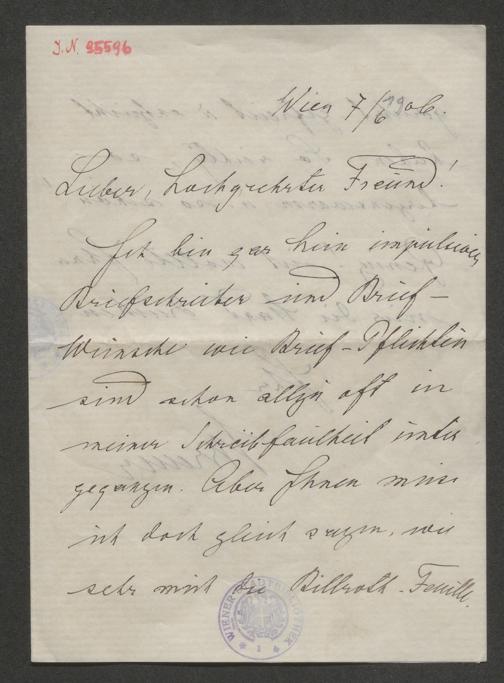 J.N. 95596
Wien 7/6 1906.
Lieber, hochgeehrter Freund!
Ich bin gar kein impulsiver
Briefschreiber und Brief-
Wünsche wie Brief-Pflichten
sind schon allzu oft in
meiner Schreibfaulheit unter
gegangen. Aber Ihnen muss
ich doch gleich sagen, wie
sehr mich die Billroth-Feuille
WIENER STADTBIBLIOTHEK